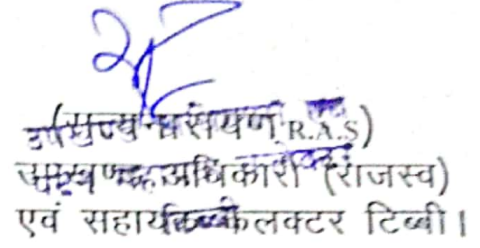 (सत्य नारायण R.A.S)
उपखण्ड अधिकारी (राजस्व)
एवं सहायक कलक्टर टिब्बी।